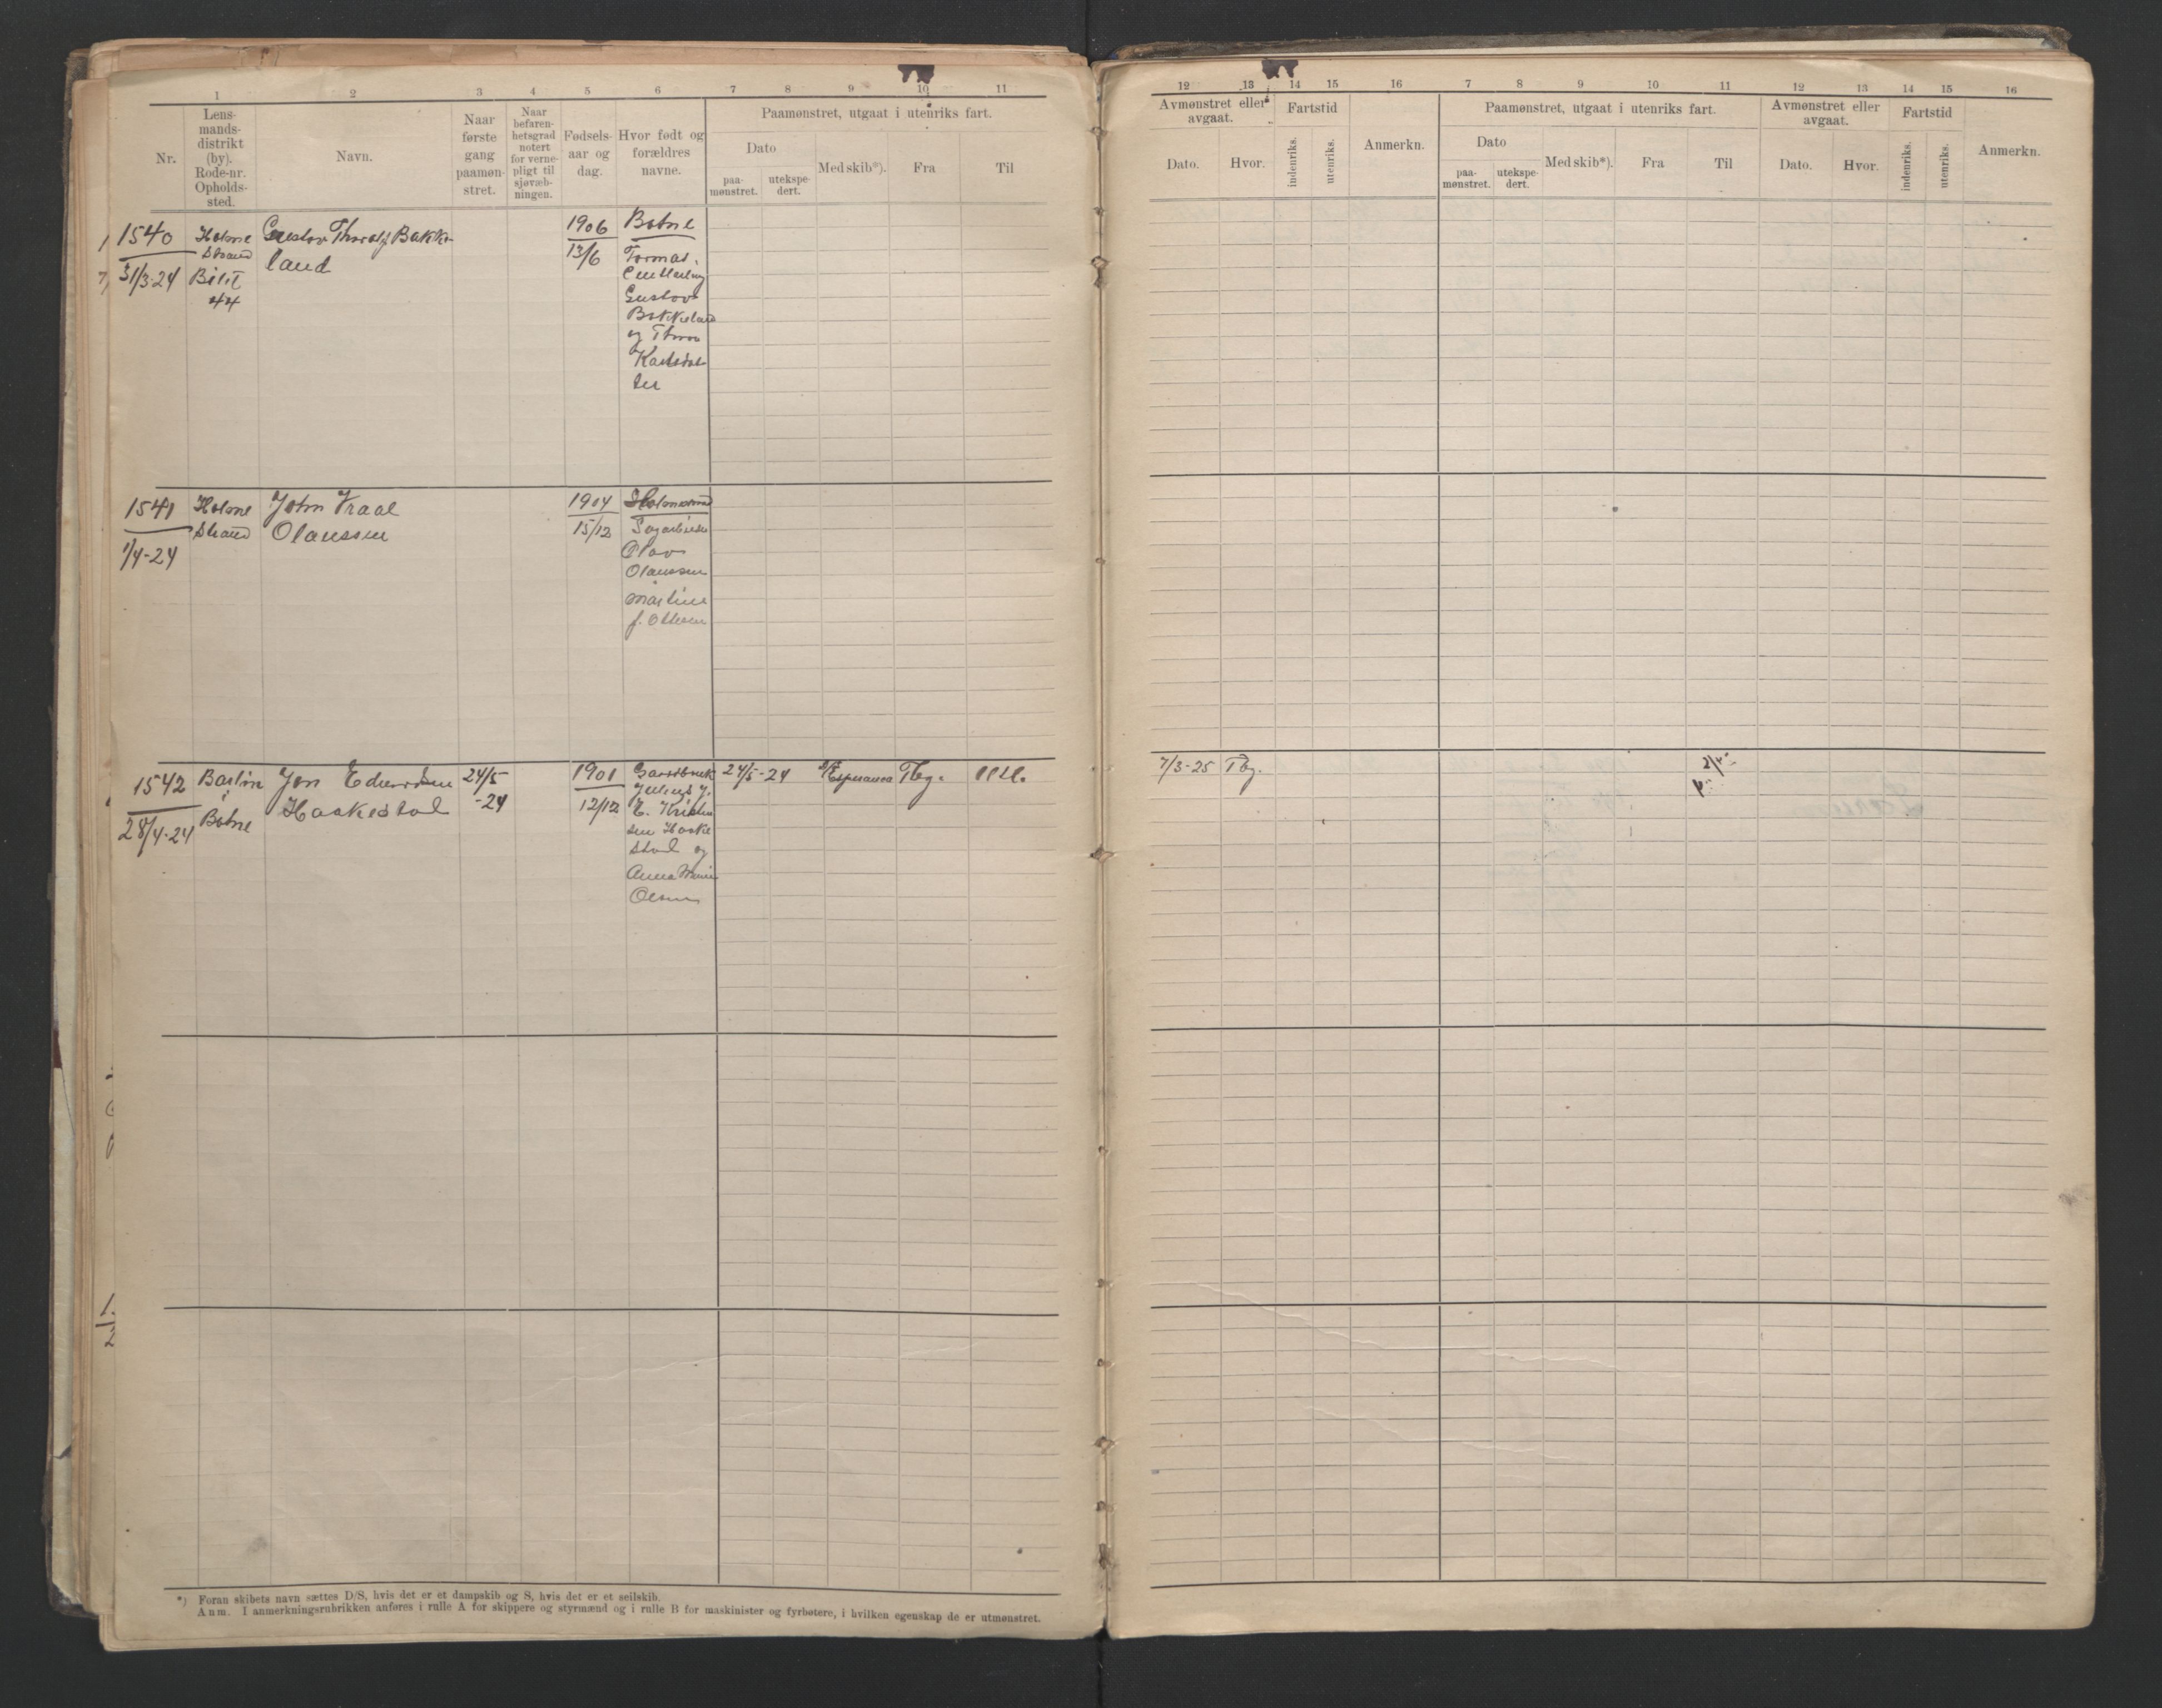 1 2 3 4 5 6 7 8 9 10 11
Nr.
Lens-
mands-
distrikt
(by).
Rode-nr.
Opholds-
sted.
Navn.
Naar
første
gang
paamøn-
stret.
Naar
befaren-
hetsgrad
notert
for verne-
pligt til
sjøvæb-
ningen.
Fødsels-
aar og
dag.
Hvor født og
forældres
navne.
Paamønstret, utgaat i utenriks fart.
Dato
paa-
mønstret.
utekspe-
dert.
Med skib*).
Fra
Til
1540
31/3-24
Holme
strand
44
Gustav Thoralf Bakke
land
1906
13/6
Botne
Gustav
Bakkeland
og
Karlsdat-
ter
1541
1/4-24
Holme
strand
John Vraal
Olaussen
1904
15/12
Holmestrand
Sagarbeider
Olav
Olaussen
Martine
f. Ottesen
1542
28/4-24
i
Botne
Jon Edvardsen
Haakestad
24/5
-24
1901
12/12
Gaardbruk
Julius J.
E. Kristen
sen Haake
stad og
Anna Marie
Olsen
24/5-24
Esperanca
Tbg.
*) Foran skibets navn sættes D/S, hvis det er et dampskib og S, hvis det er et seilskib.
Anm. I anmerkningsrubrikken anføres i rulle A for skippere og styrmænd og i rulle B for maskinister og fyrbøtere, i hvilken egenskap de er utmønstret.
12 13 14 15 16 7 8 9 10 11 12 13 14 15 16
Avmønstret eller
avgaat.
Dato.
Hvor.
Fartstid
indenriks.
utenriks.
Anmerkn.
Paamønstret, utgaat i utenriks fart.
Dato
paa-
mønstret.
utekspe-
dert.
Med skib*).
Fra
Til
Avmønstret eller
avgaat.
Dato.
Hvor.
Fartstid
indenriks.
utenriks.
Anmerkn.
7/3-25 Tbg.